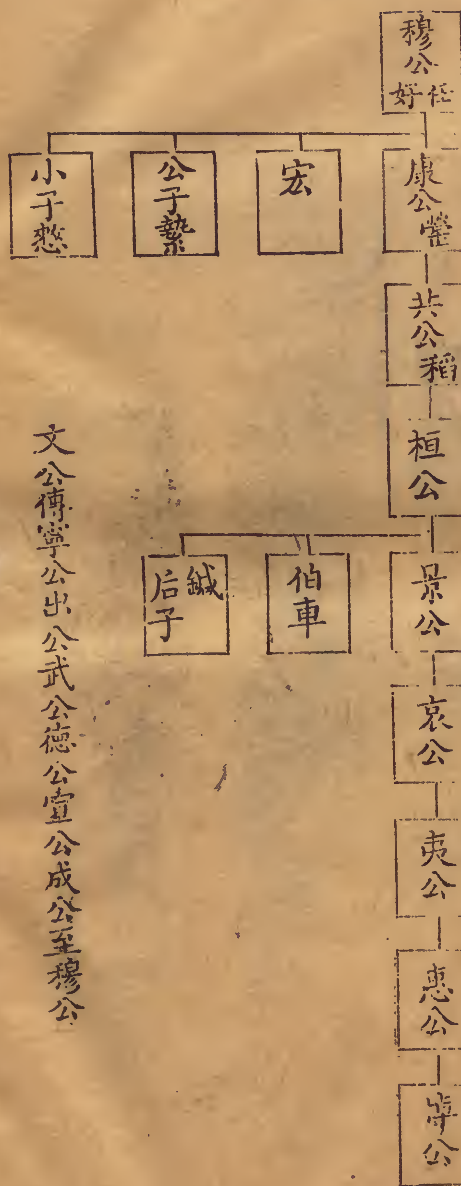 穆公任好
康公罃
宏
公子縶
小子憖
共公稻
桓公
景公
伯車
后子鍼
哀公
夷公
惠公
悼公
文公傳寧公出公武公德公宣公成公至穆公